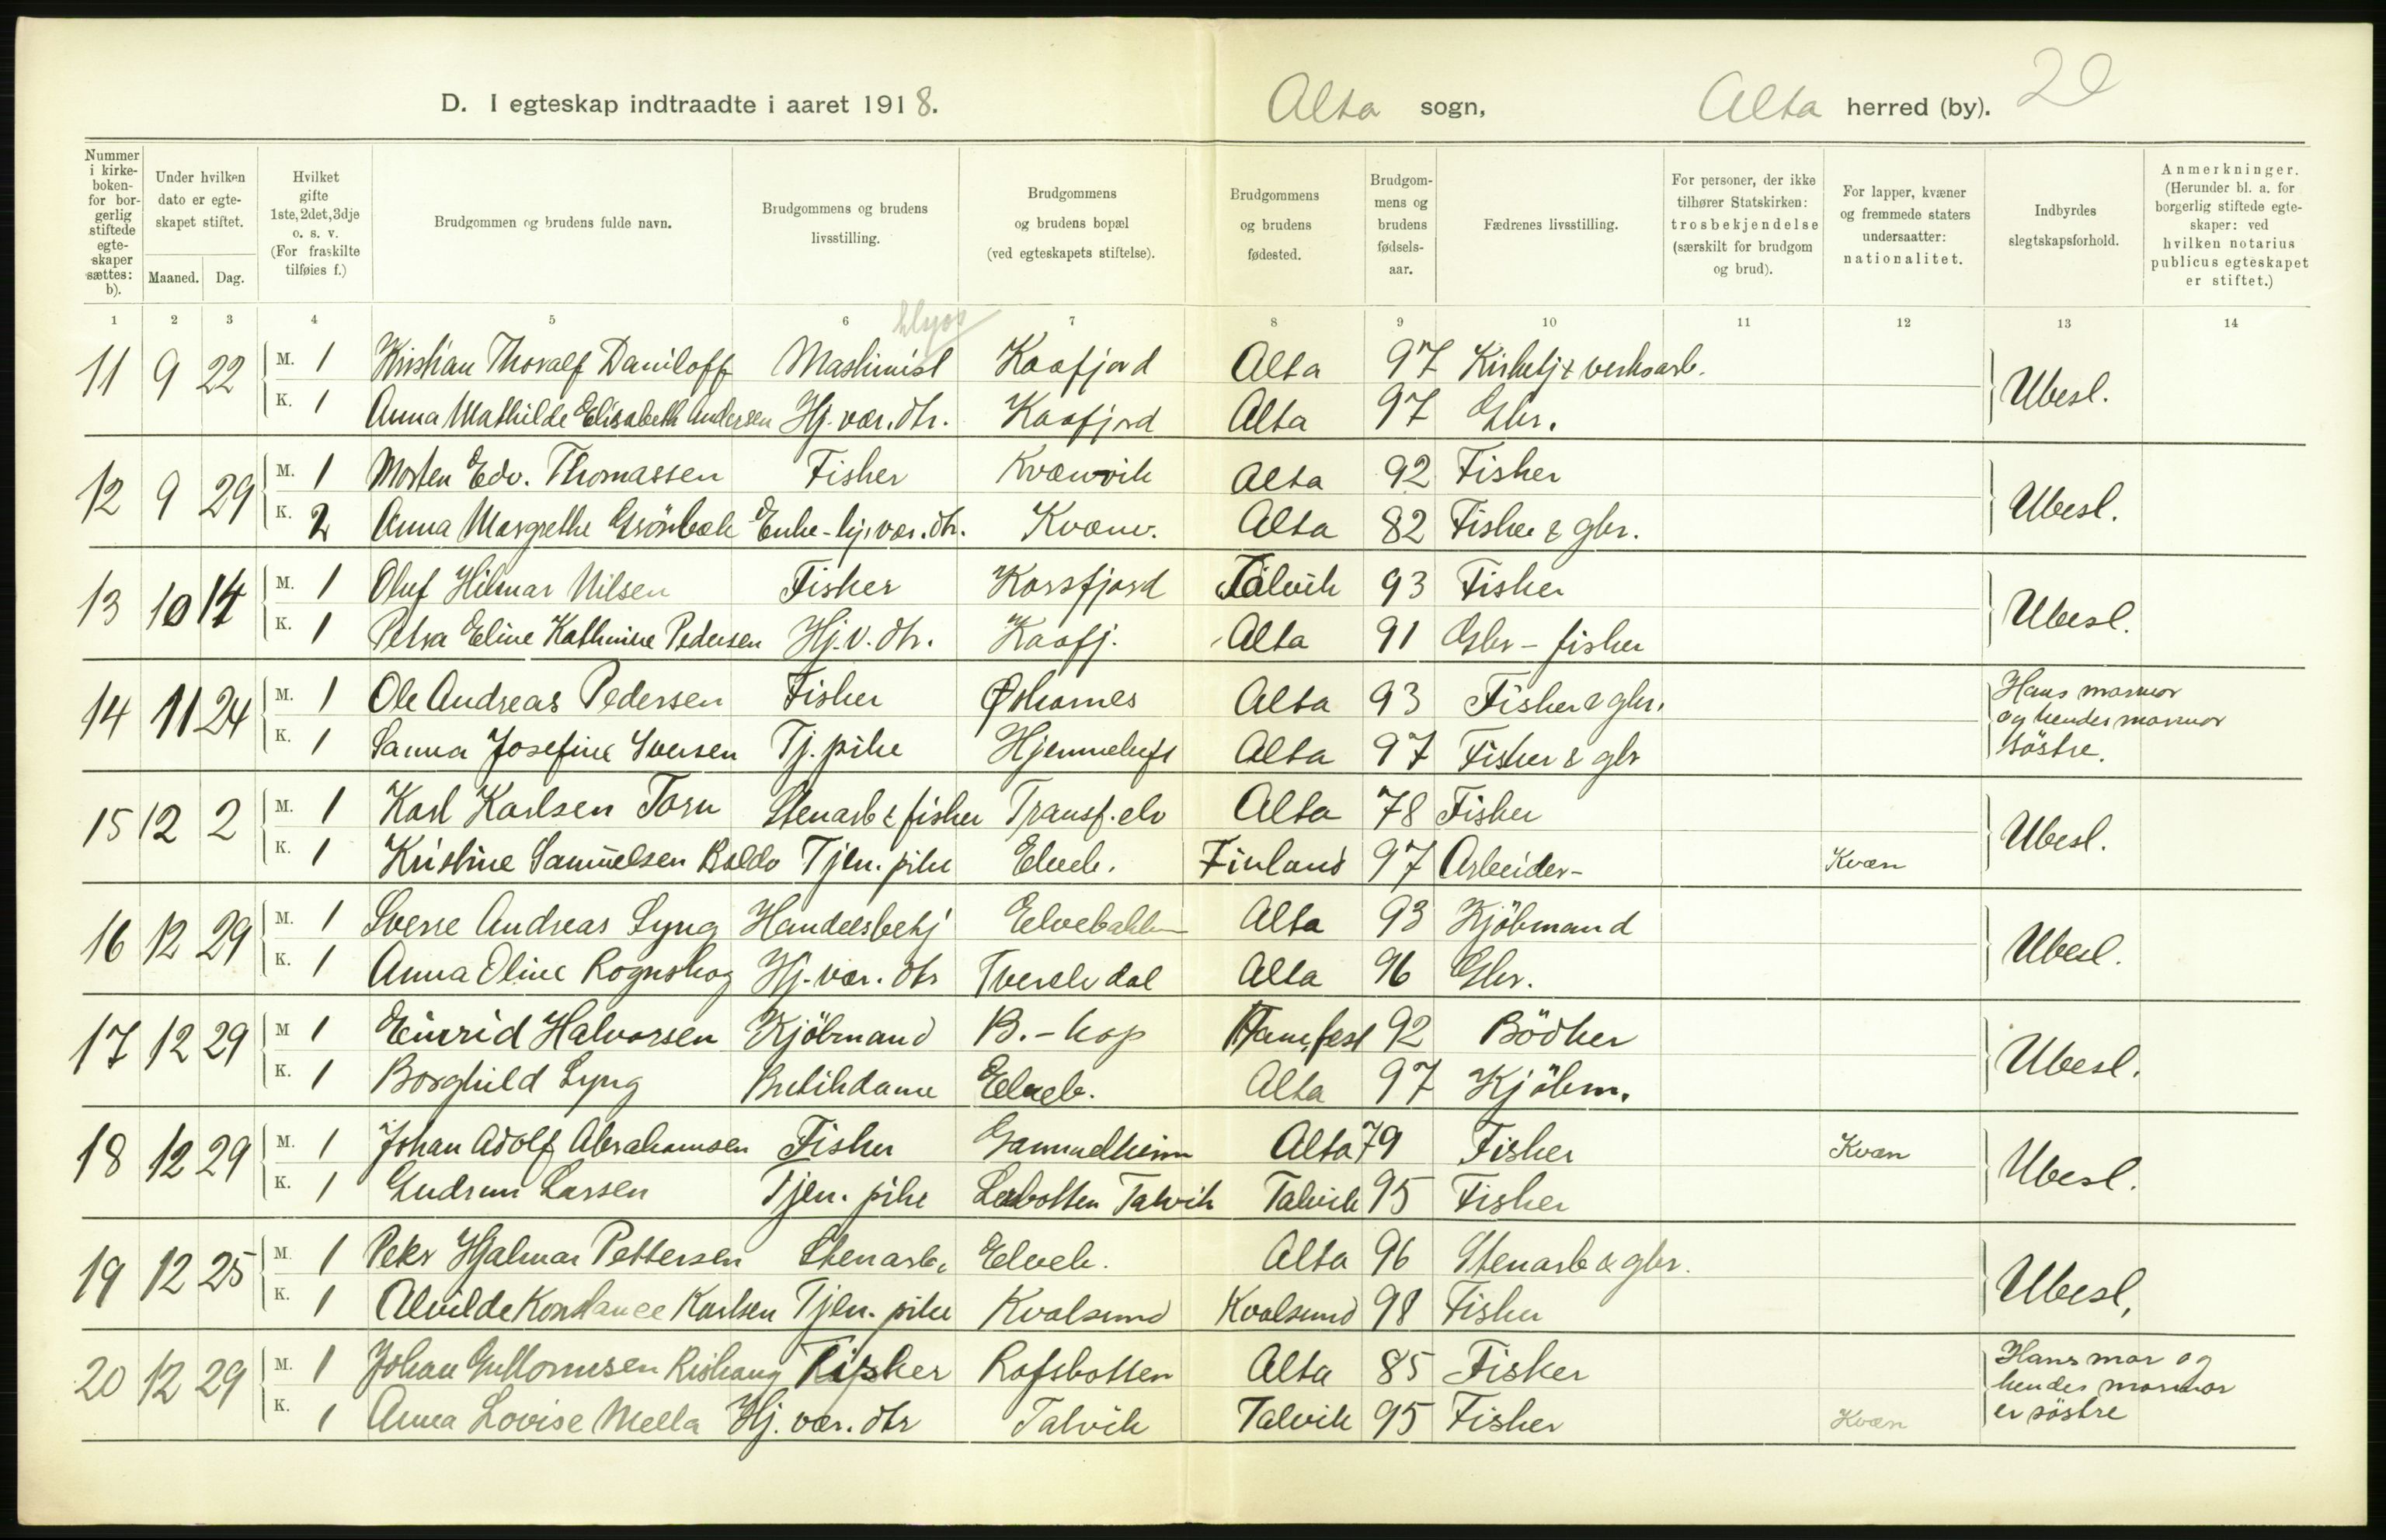 D. I egteskap indtraadte i aaret 1918. Alta sogn, Alta herred (by). 20
Nummer i kirkeboken- for borgerlig stiftede egteskaper sættes: b).
Under hvilken dato er egteskapet stiftet.
Maaned. Dag.
Hvilket gifte 1ste, 2det, 3dje o. s. v. (For fraskilte tilføies f.)
Brudgommen og brudens fulde navn.
Brudgommens og brudens livsstilling.
Brudgommens og brudens bopæl (ved egteskapets stiftelse).
Brudgommens og brudens fødested.
Brudgommens og brudens fødselsaar.
Fædrenes livsstilling.
For personer, der ikke tilhører Statskirken: trosbekjendelse (særskilt for brudgom og brud).
For lapper, kvæner og fremmede staters undersaatter: nationalitet.
Indbyrdes slegtskapsforhold.
Anmerkninger. (Herunder bl. a. for borgerlig stiftede egteskaper: ved hvilken notarius publicus egteskapet er stiftet.)
1 2 3 4 5 6 7 8 9 10 11 12 13 14
11 9 22 M. 1 Kristian Thoralf Daniloff Maskinist Kaafjord Alta 97 Kirketj & verksarb. Ubesl.
K. 1 Anna Mathilde Elisabeth Andersen Hj. vær. dtr. Kaafjord Alta 97 Gbr.
12 9 29 M. 1 Morten Edv. Thomassen Fisker Kvænvik Alta 92 Fisker Ubesl.
K. 2 Anna Margrethe Grönbek Enke - hj. vær. dtr. Kvænv. Alta 82 Fisker & gbr.
13 10 14 M. 1 Oluf Hilmar Nilsen Fisker Korsfjord Talvik 93 Fisker Ubesl.
K. 1 Petra Eline Kathrine Pedersen Hj. v. dtr. Kaafj. Alta 91 Gbr - fisker
14 11 24 M. 1 Ole Andreas Pedersen Fisker Øskarnes Alta 93 Fisker & gbr. Hans mormor
og hendes mormor
K. 1 Sanna Josefine Iversen Tj. pike Hjemmeluft Alta 97 Fisker & gbr söstre.
15 12 2 M. 1 Karl Karlsen Torn Stenarb & fisker Transf. elv Alta 78 Fisker Ubesl.
K. 1 Kristine Samuelsen Baldo Tjen. pike Elveb. Finland 97 Arbeider - Kvæn
16 12 29 M. 1 Sverre Andreas Lyng Handelsbetj Elvebakken Alta 93 Kjöbmand Ubesl.
K. 1 Anna Oline Rognskog Hj. vær. dtr Tverelvdal Alta 96 Gbr.
17 12 29 M 1 Einrid Halvorsen Kjöbmand B. - kop Hamfest 92 Bödker Ubesl.
K. 1 Borghild Lyng Butikdame Elveb. Alta 97 Kjöbm.
18 12 29 M. 1 Johan Adolf Abrahamsen Fisker Alta 79 Fisker Kvæn Ubesl.
K. 1 Gudrun Larsen Tjen. pike Lerbotten Talvik Talvik 95 Fisker
19 12 25 M. 1 Peter Hjalmar Pettersen Stenarb. Elveb. Alta 96 Stenarb & gbr. Ubesl.
K. 1 Alvilde Konstance Karlsen Tjen. pike Kvalsund Kvalsund 98 Fisker
20 12 29 M. 1 Johan Guttormsen Rishaug Fisker Rafsbotten Alta 85 Fisker Hans mor og
hendes mormor
K. 1 Anna Lovise Mella Hj. vær. dtr Talvik Talvik 95 Fisker Kvæn er söstre